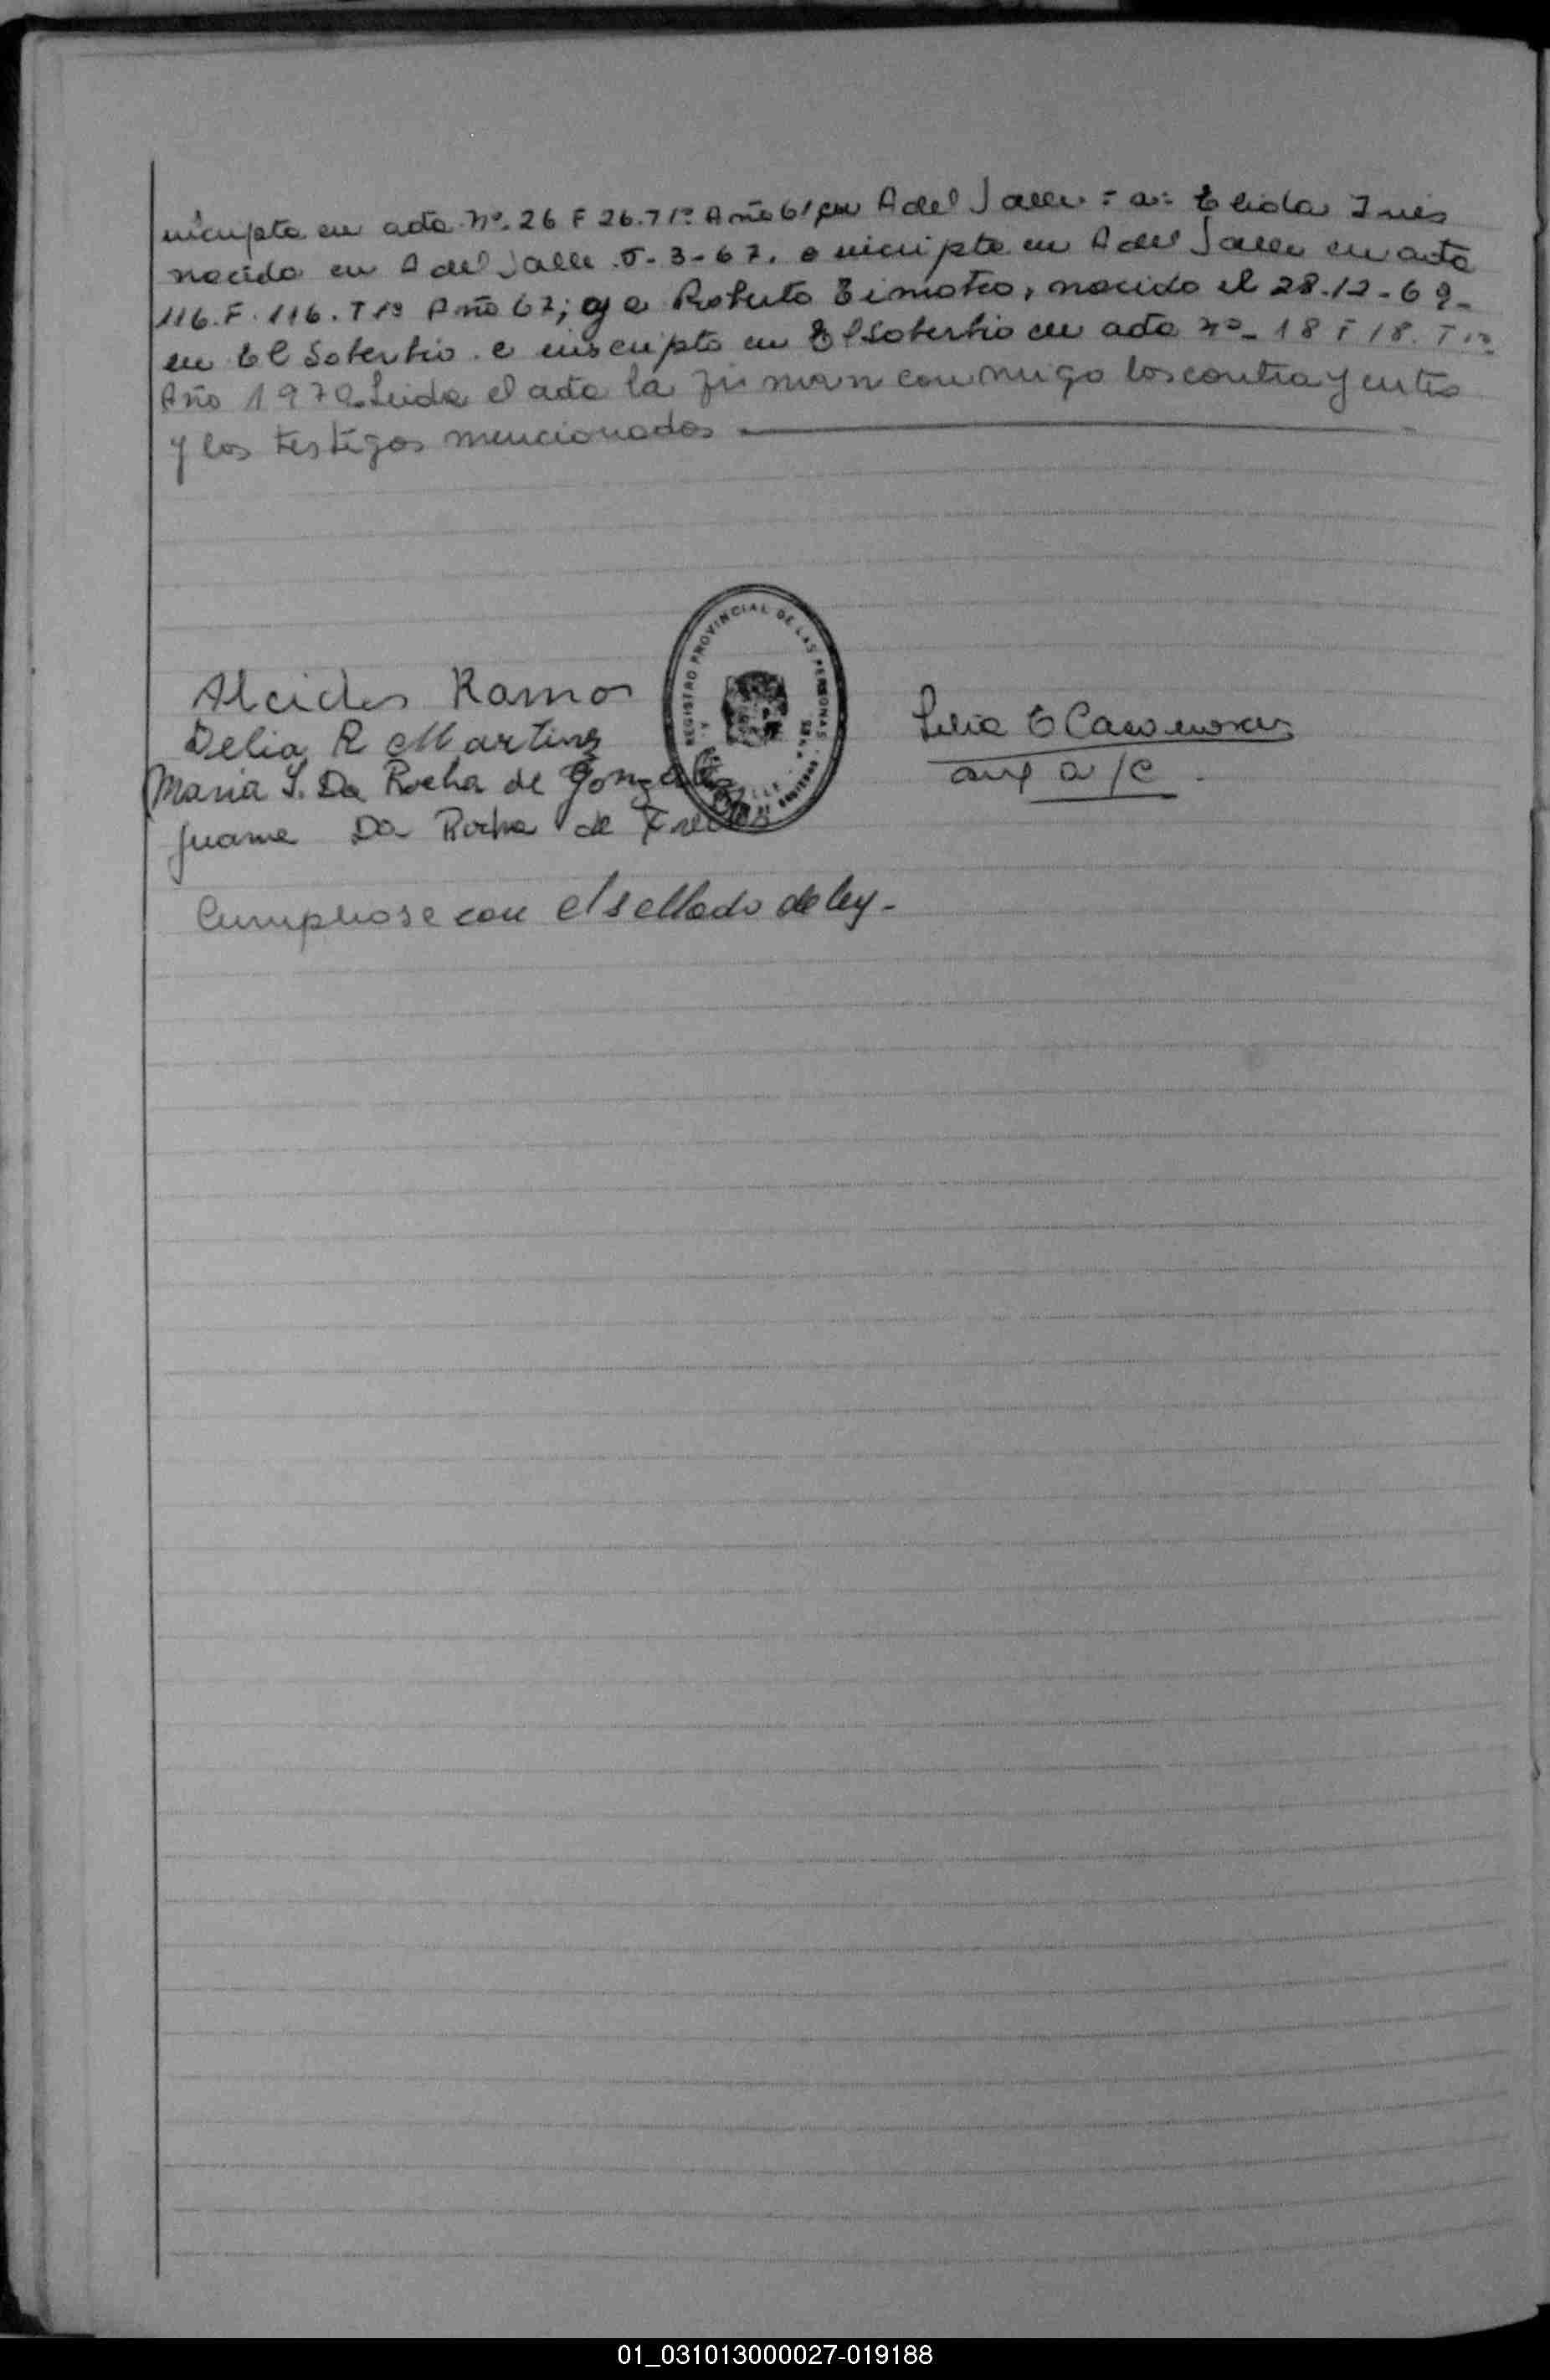 inscripta en acta Nº. 26 F 26. T 1º Año 61 en A del Valle = a: Elida Ines
nacida en A del Valle 5-3-67. e inscripta en A del Valle en acta
116. F. 116. T 1º Año 67; y a Roberto Timoteo, nacido el 28-12-69-
en El Soberbio e inscripto en El Soberbio en acta Nº- 18 F 18. T 1º
Año 1970. Leida el acta la firman conmigo los contrayentes
y los testigos mencionados
REGISTRO PROVINCIAL DE LAS PERSONAS
Alcides Ramos
Delia R Martins
Maria S. Da Rocha de Gonzalez
Juana Da Rocha de
E Casanova
aux a/c
Cumpliose con el sellado de ley-
01_031013000027-019188